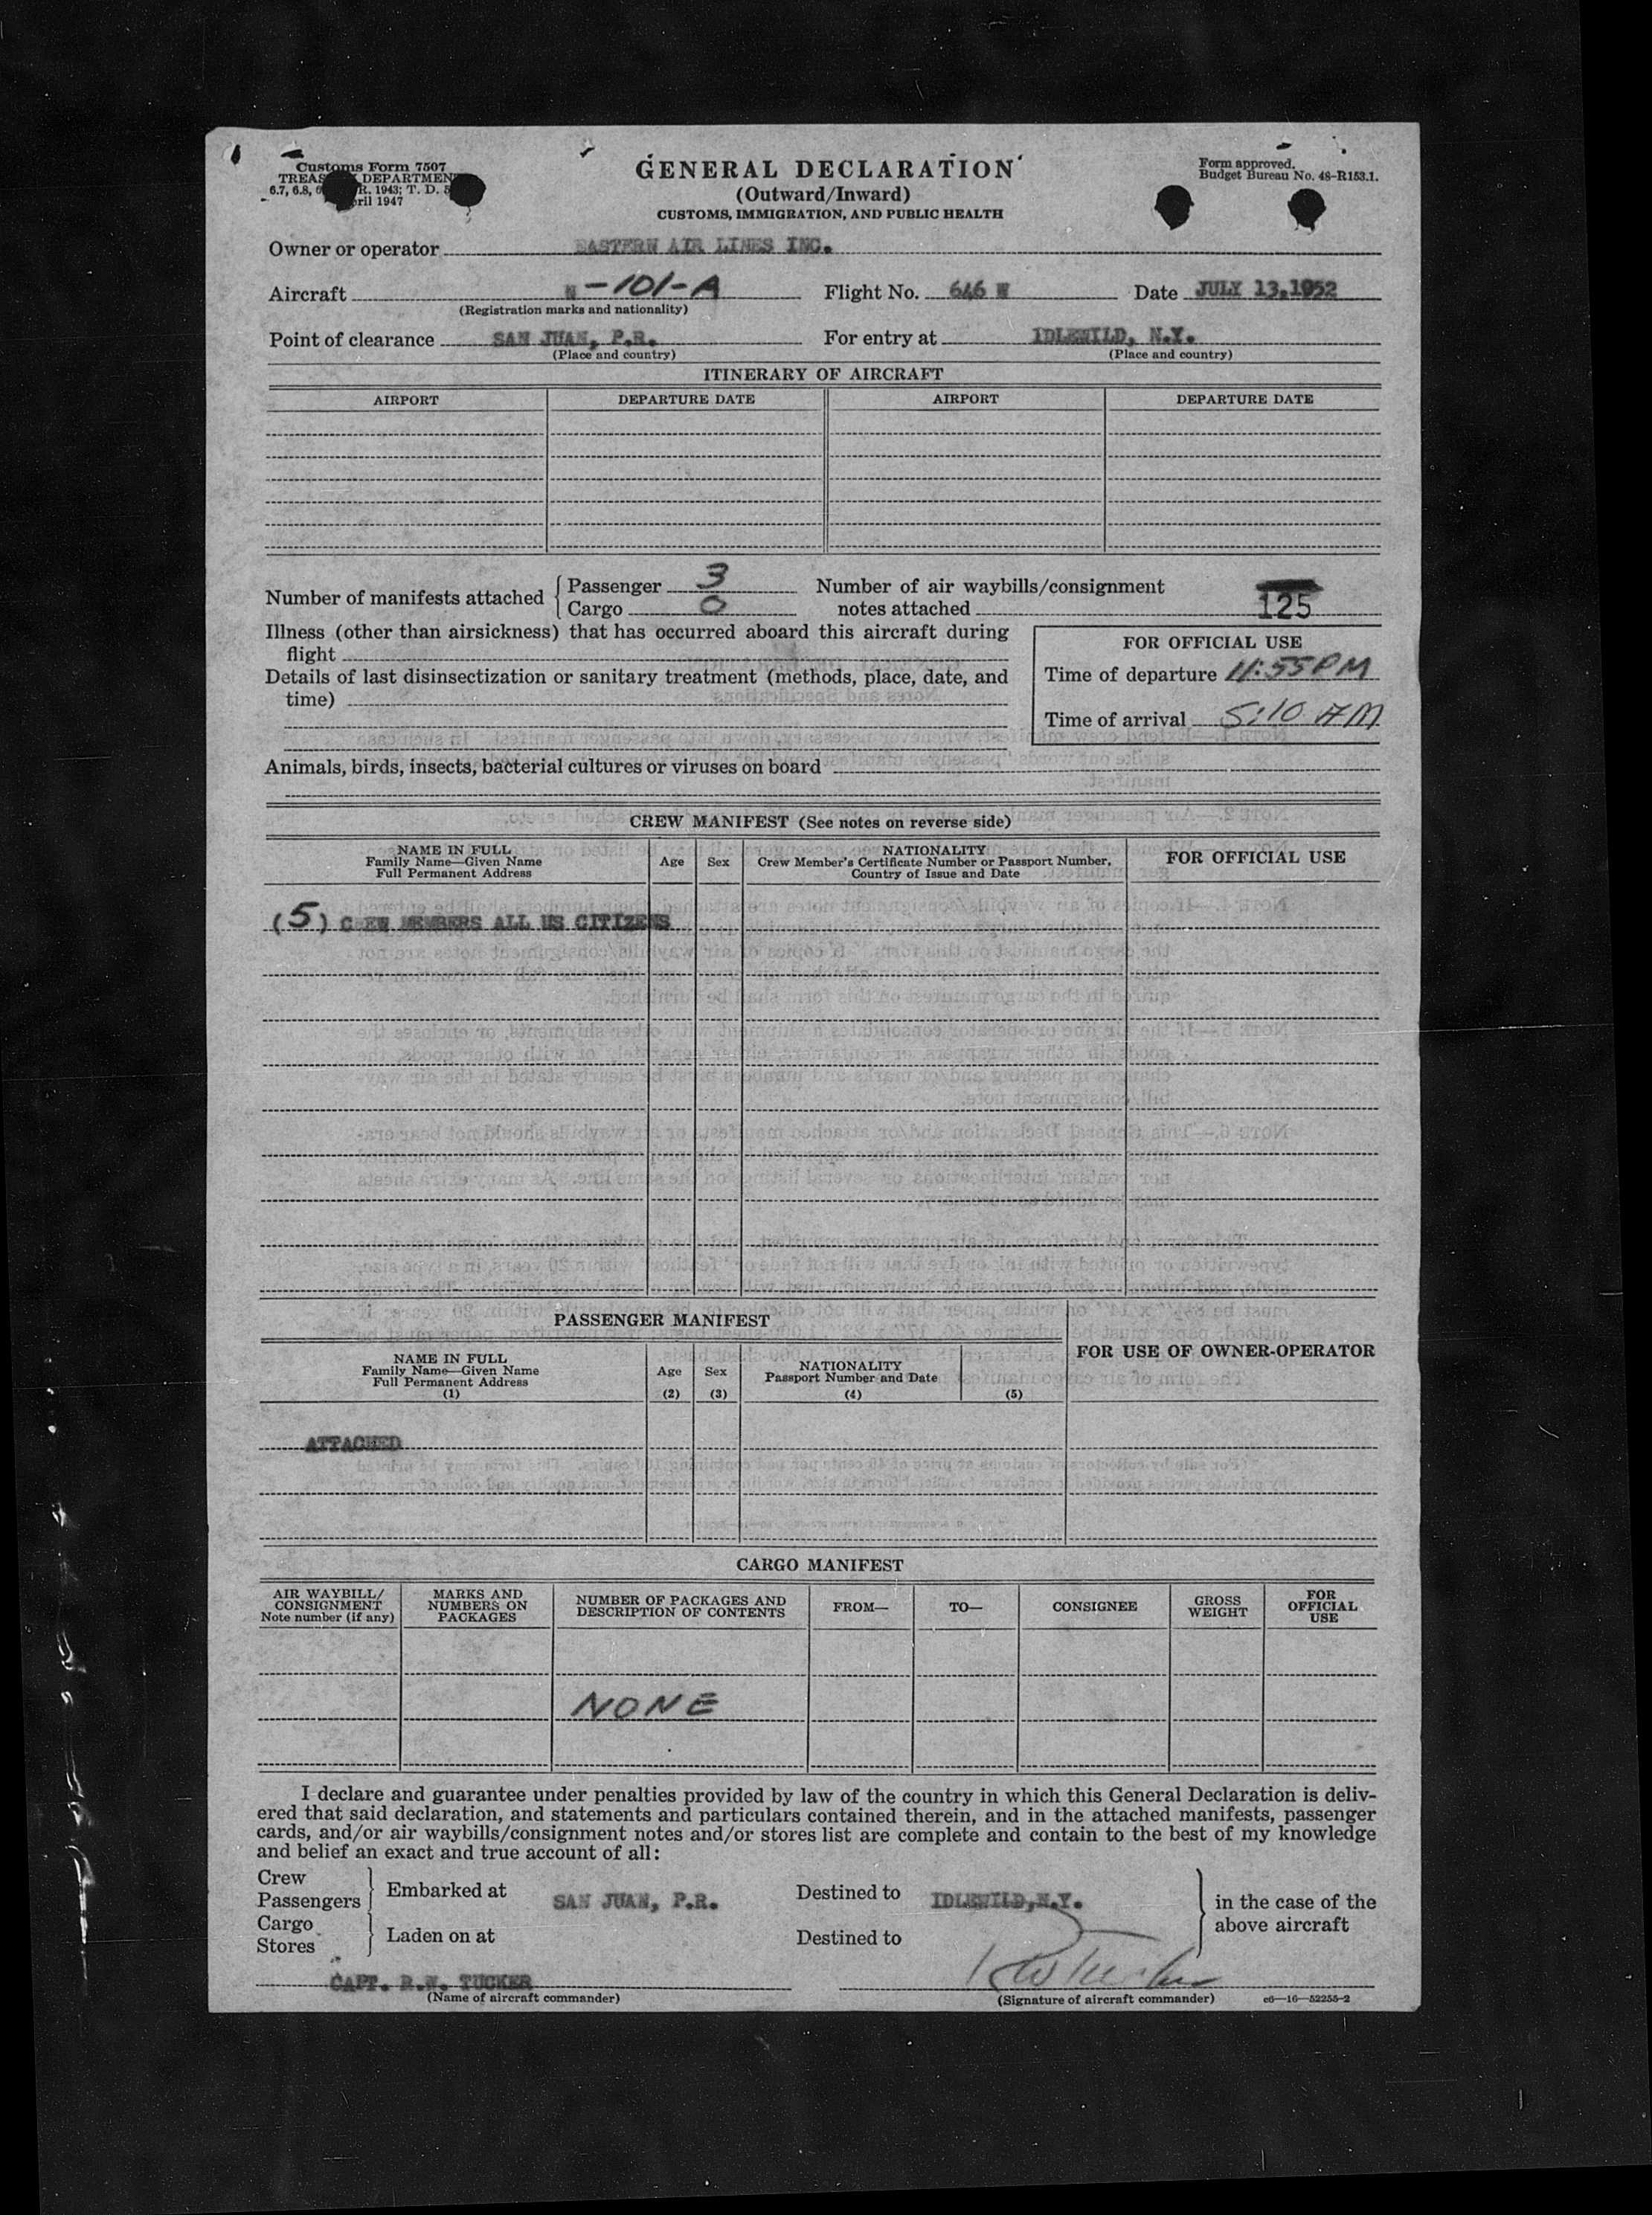 Customs Form 7507
TREAS DEPARTMEN
6.7, 6.8, R. 1943; T. D.
ril 1947
GENERAL DECLARATION
(Outward/Inward)
CUSTOMS, IMMIGRATION, AND PUBLIC HEALTH
Form approved.
Budget Bureau No. 48-R153.1.
Owner or operator EASTERN AIR LINES INC.
Aircraft N-101-A Flight No. 646 W Date JULY 13,1952
(Registration marks and nationality)
Point of clearance SAN JUAN, P.R. For entry at IDLEWILD, N.Y.
(Place and country) (Place and country)
ITINERARY OF AIRCRAFT
AIRPORT DEPARTURE DATE AIRPORT DEPARTURE DATE
Number of manifests attached { Passenger 3
Cargo 0
Number of air waybills/consignment
notes attached 125
Illness (other than airsickness) that has occurred aboard this aircraft during
flight
Details of last disinsectization or sanitary treatment (methods, place, date, and
time)
FOR OFFICIAL USE
Time of departure 11:55 PM
Time of arrival 5:10 AM
Animals, birds, insects, bacterial cultures or viruses on board
CREW MANIFEST (See notes on reverse side)
NAME IN FULL
Family Name—Given Name
Full Permanent Address
Age
Sex
NATIONALITY
Crew Member's Certificate Number or Passport Number,
Country of Issue and Date
FOR OFFICIAL USE
(5) CREW MEMBERS ALL US CITIZENS
PASSENGER MANIFEST
NAME IN FULL
Family Name—Given Name
Full Permanent Address
(1)
Age
(2)
Sex
(3)
NATIONALITY
Passport Number and Date
(4)
(5)
FOR USE OF OWNER-OPERATOR
ATTACHED
CARGO MANIFEST
AIR WAYBILL/
CONSIGNMENT
Note number (if any)
MARKS AND
NUMBERS ON
PACKAGES
NUMBER OF PACKAGES AND
DESCRIPTION OF CONTENTS
FROM—
TO—
CONSIGNEE
GROSS
WEIGHT
FOR
OFFICIAL
USE
NONE
I declare and guarantee under penalties provided by law of the country in which this General Declaration is deliv-
ered that said declaration, and statements and particulars contained therein, and in the attached manifests, passenger
cards, and/or air waybills/consignment notes and/or stores list are complete and contain to the best of my knowledge
and belief an exact and true account of all:
Crew
Passengers } Embarked at SAN JUAN, P.R. Destined to IDLEWILD, N.Y.
Cargo
Stores } Laden on at Destined to
} in the case of the
above aircraft
CAPT. R.W. TUCKER RW Tucker
(Name of aircraft commander) (Signature of aircraft commander) c6—16—52255-2